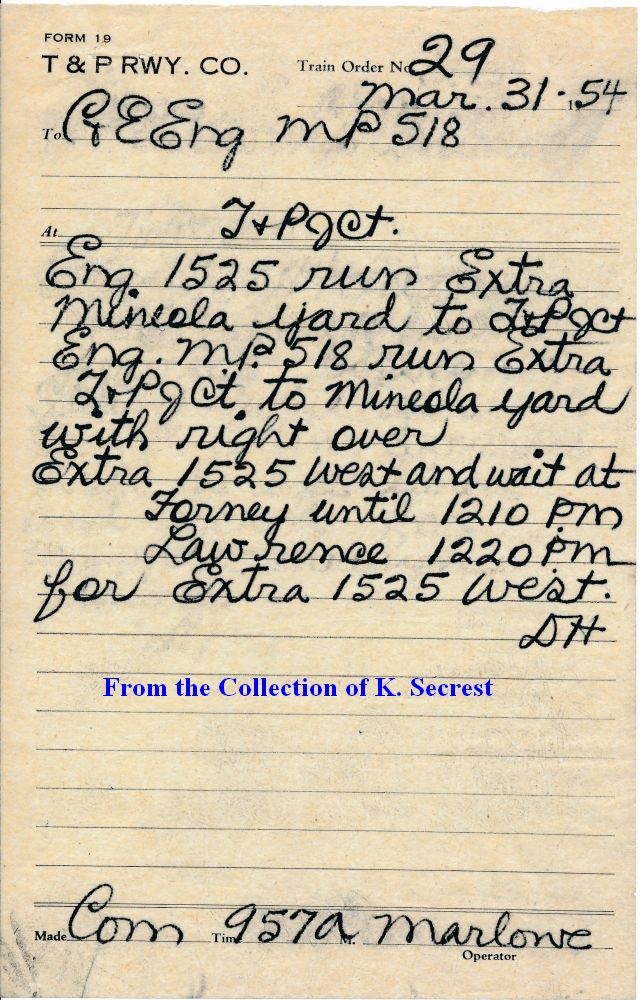 FORM 19
T & P RWY. CO. Train Order No. 29
Mar. 31 - 1954
To C&E Eng MP 518
At T&PJct.
Eng. 1525 run Extra
Mineola yard to T&PJct
Eng. M.P. 518 run Extra
T&PJct. to Mineola yard
with right over
Extra 1525 West and wait at
Forney until 1210 PM
Lawrence 1220 PM
for Extra 1525 West.
DH
From the Collection of K. Secrest
Made Com Time 957A M. Marlowe
Operator